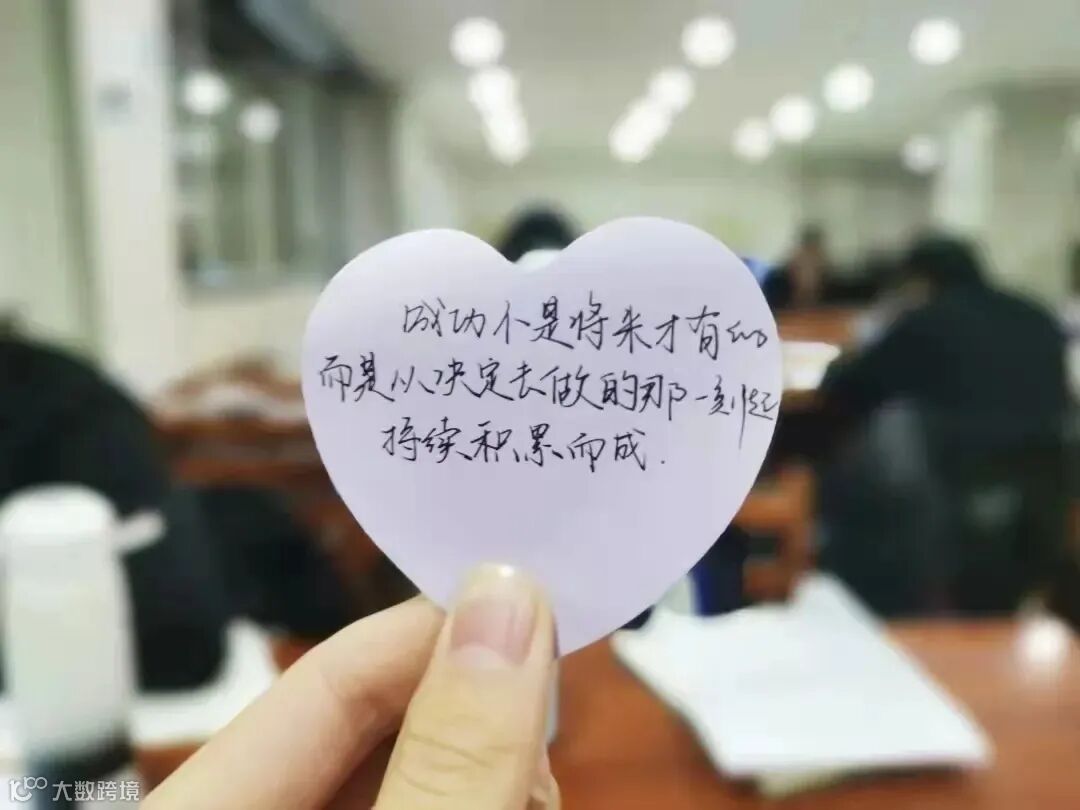 成功不是将来才有的
而是从决定去做的那一刻起
持续积累而成.
大数跨境